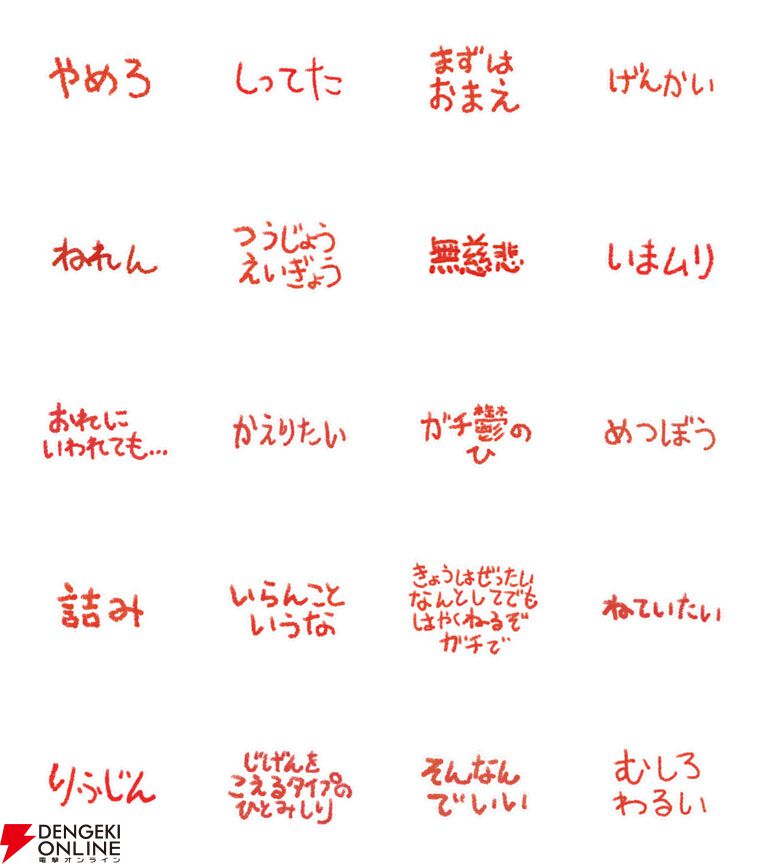 やめろ
しってた
まずは
おまえ
げんかい
ねれん
つうじょう
えいぎょう
無慈悲
いまムリ
おれに
いわれても...
かえりたい
ガチ鬱の
ひ
めつぼう
詰み
いらんこと
いうな
きょうはぜったい
なんとしてでも
はやくねーるぞ
ガチで
ねていたい
りふじん
じげんを
こえるタイプの
ひとみしり
そんなん
でいい
むしろ
わるい
DENGEKI
ONLINE
電撃オンライン